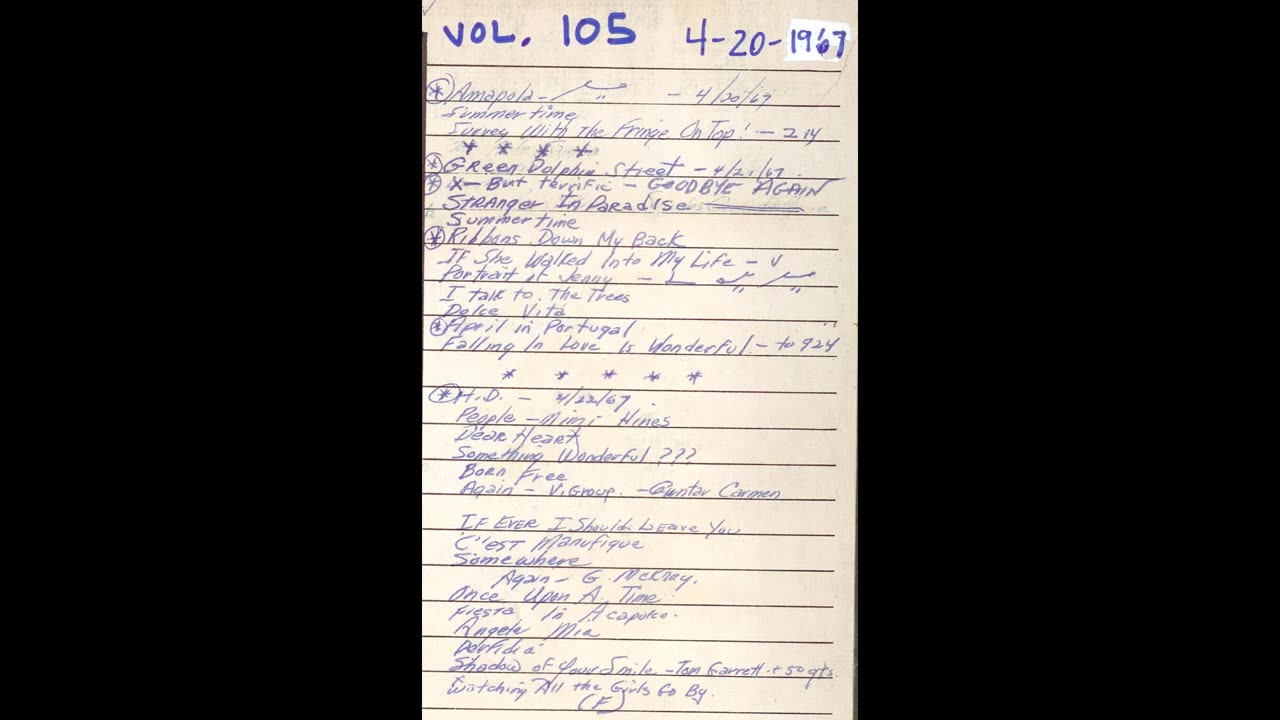 VOL. 105 4-20-1967
* Amapola - " - 4/20/67
Summertime
Surrey With the Fringe On Top! - 214
* * * *
* Green Dolphin Street - 4/21/67.
* X- But terrific - GOODBYE AGAIN
Stranger In Paradise
Summertime
* Ribbons Down My Back
If She Walked Into My Life - V
Portrait of Jenny - " "
I talk to. The Trees
Dolce Vita
* April in Portugal
Falling In Love Is Wonderful - to 924
* * * * *
* H.D. - 4/22/67.
People - Mimi Hines
Dear Heart
Something Wonderful ???
Born Free
Again - V. Group. - Carmen
IF EVER I Should LEave You
C''EST Manufique
Somewhere
Again - G. McKray.
Once Upon A. Time
Fiesta In Acapulco.
Angela Mia
Perfidia
Shadow of Your Smile - Tom Garrett + 50 gts.
Watching All the Girls Go By.
(F)